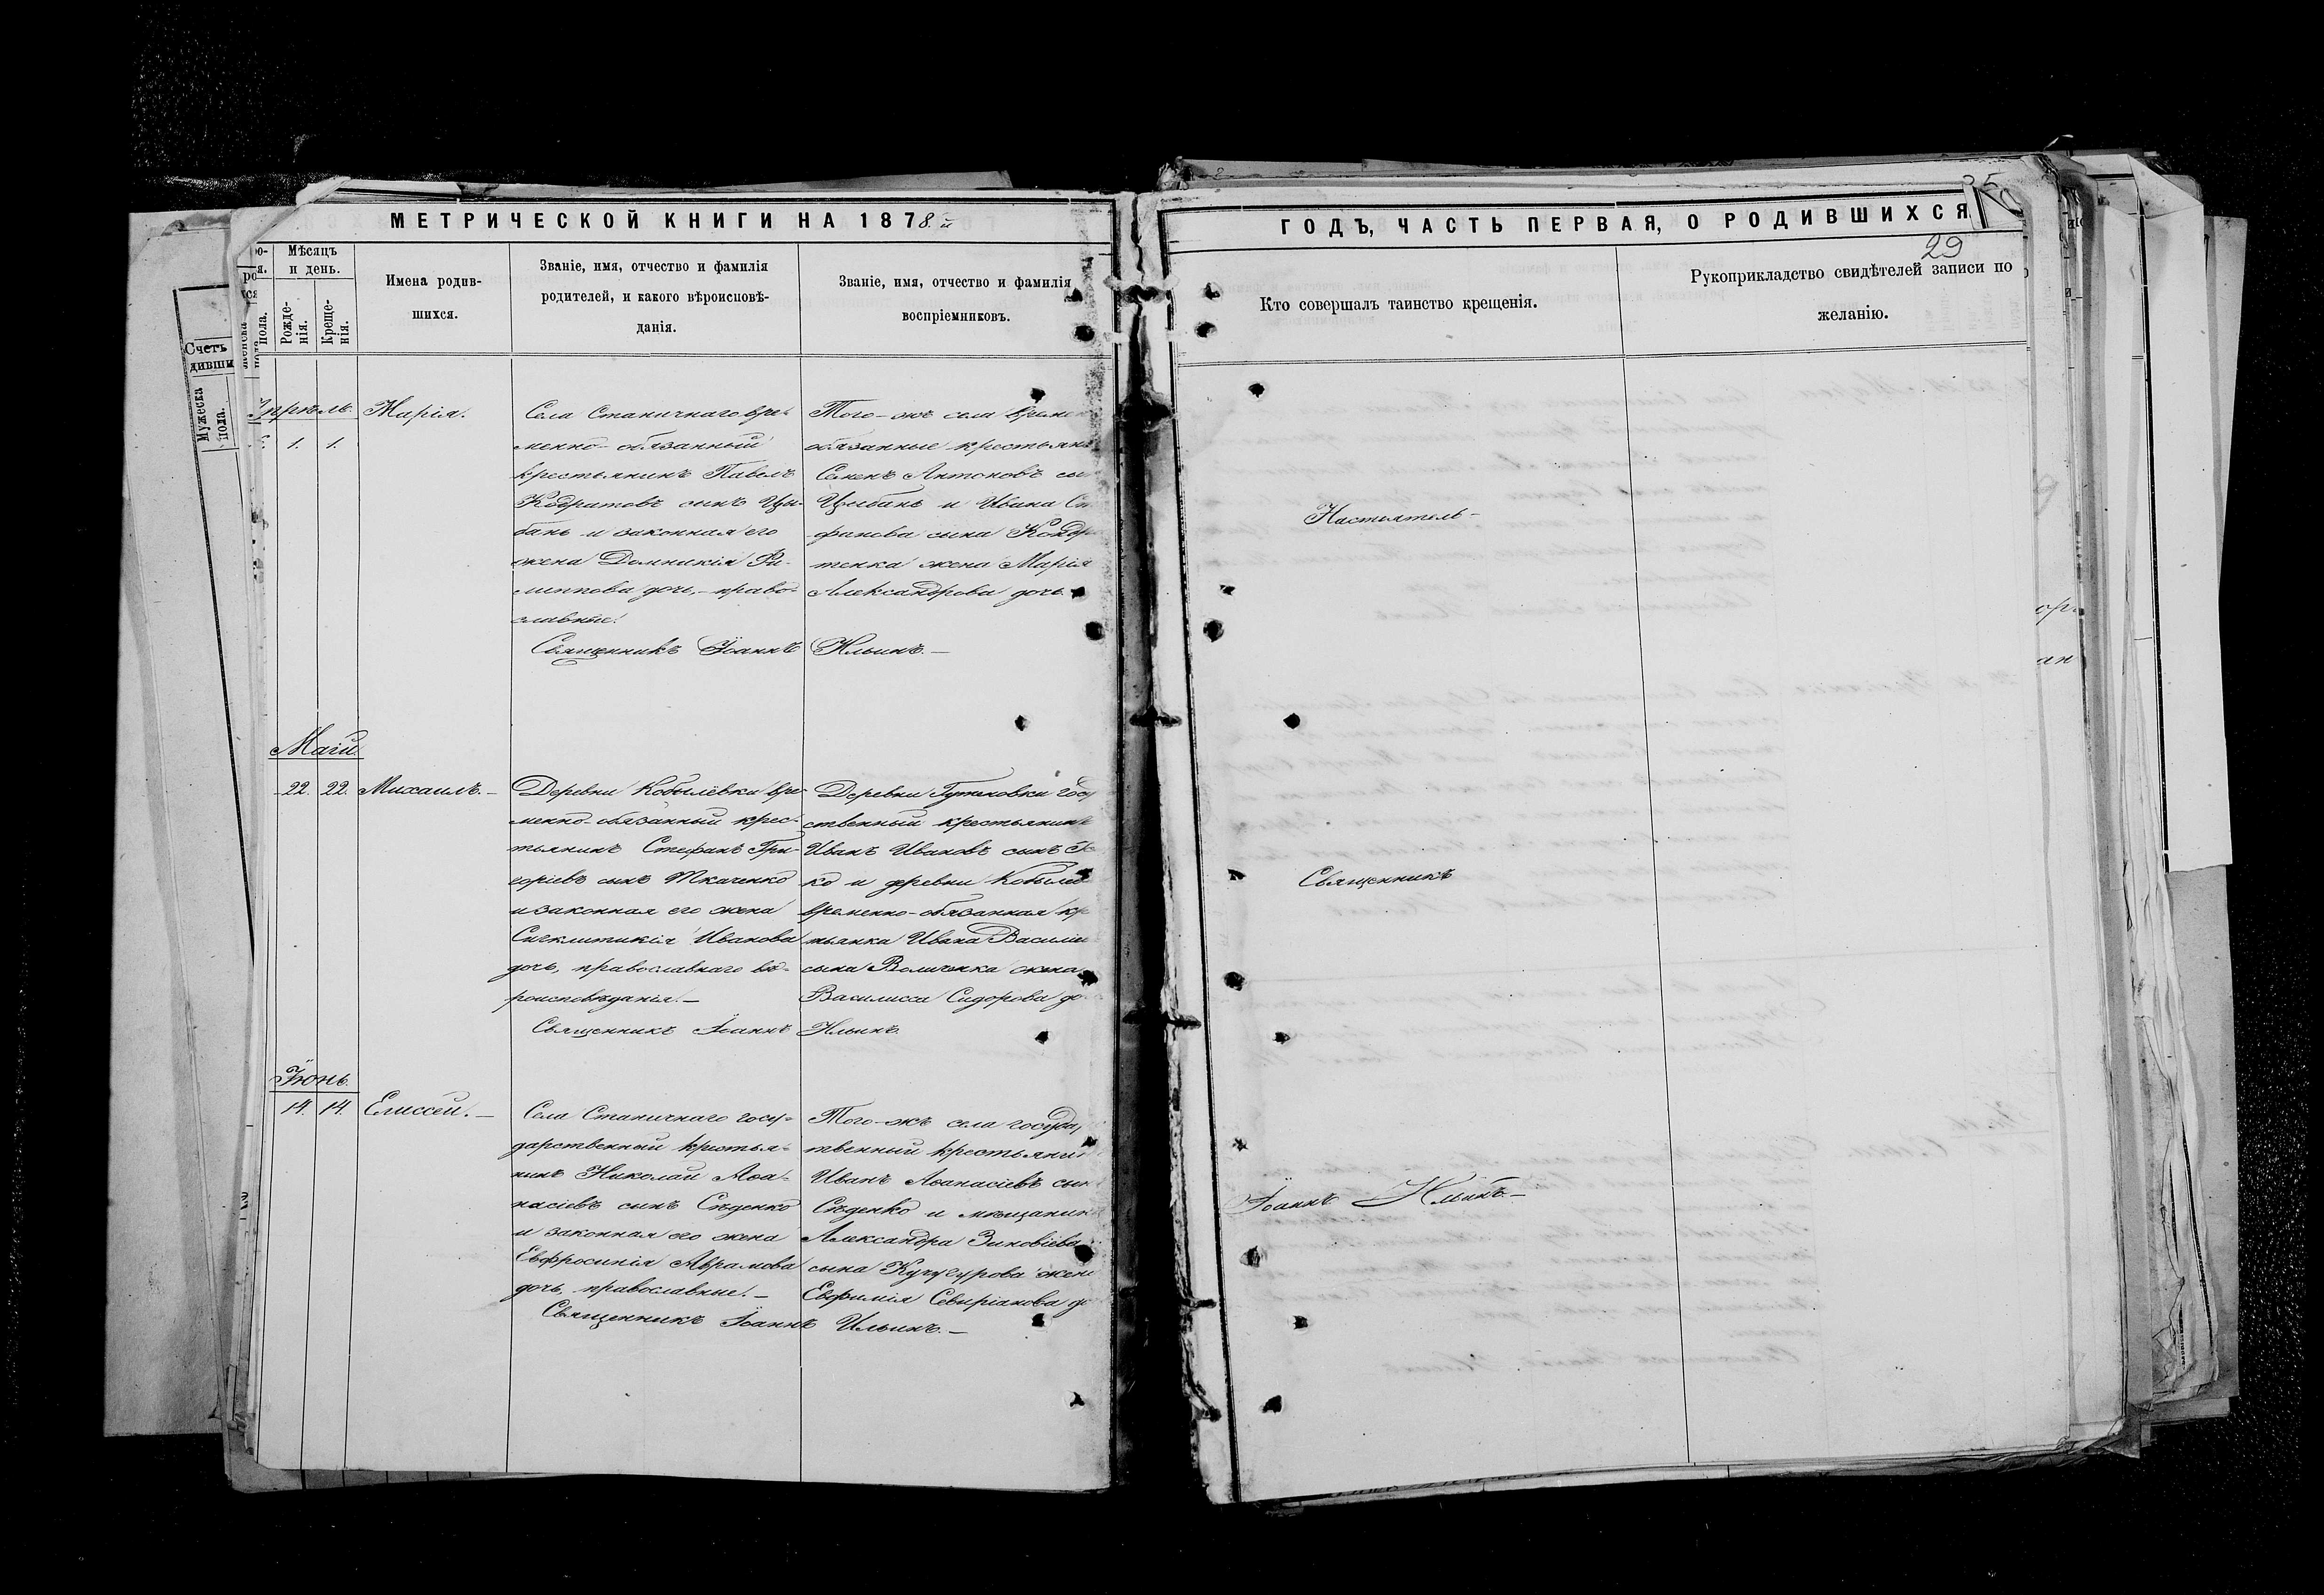 МЕТРИЧЕСКОЙ КНИГИ НА 1878.й
ГОДЪ, ЧАСТЬ ПЕРВАЯ, О РОДИВШИХСЯ
29
Счетъ
дивши
Мужеска
пола.
пола.
Мѣсяцъ
и день.
Рожде-
нія.
Креще-
нія.
Имена родив-
шихся.
Званіе, имя, отчество и фамилія
родителей, и какого вѣроисповѣ-
данія.
Званіе, имя, отчество и фамилія
воспріемниковъ.
Кто совершалъ таинство крещенія.
Рукоприкладство свидѣтелей записи по
желанію.
Апрѣль.
1. 1.
Марія.
Села Станичнаго вре-
менно-обязанный
крестьянинъ Павелъ
Кодратовъ сынъ Цы-
бань и законная его
жена Домникія Фи-
липпова дочь,-право-
славные.
Того-жъ села времен
обязанные крестьяне
Семенъ Антоновъ сы
Цыбань и Ивана Ст
фанова сына Кондра
тенка жена Марія
Александрова дочь
Священникъ Іоаннъ Ильинъ.-
Маій.
22. 22. Михаилъ.-
Деревни Кобылёвки вре-
менно-обязанный крес-
тьянинъ Стефанъ Гри-
горіевъ сынъ Ткаченко
и законная его жена
Сигклитикія Иванова
дочь, православнаго вѣ-
роисповѣданія.-
Деревни Гутеновки госу
ственный крестьянинъ
Иванъ Ивановъ сынъ
ко и деревни Кобылев
временно-обязанная кр
тьянка Ивана Василіе
сына Воличенка жена
Василисса Сидорова до
Священникъ Іоаннъ Ильинъ.
Іюнь.
14. 14. Елиссей.-
Села Станичнаго госу-
дарственный крестья-
нинъ Николай Аѳа-
насіевъ сынъ Сѣденко
и законная его жена
Евфросинія Аврамова
дочь, православные.-
Того-жъ села государ
твенный крестьянин
Иванъ Аѳанасіевъ сын
Сѣденко и мѣщанин
Александра Зиновіева
сына Кучугурова жена
Евфимія Севиріанова до
Священникъ Іоаннъ Ильинъ.-
Настоятель-
Священникъ
Іоаннъ Ильинъ-